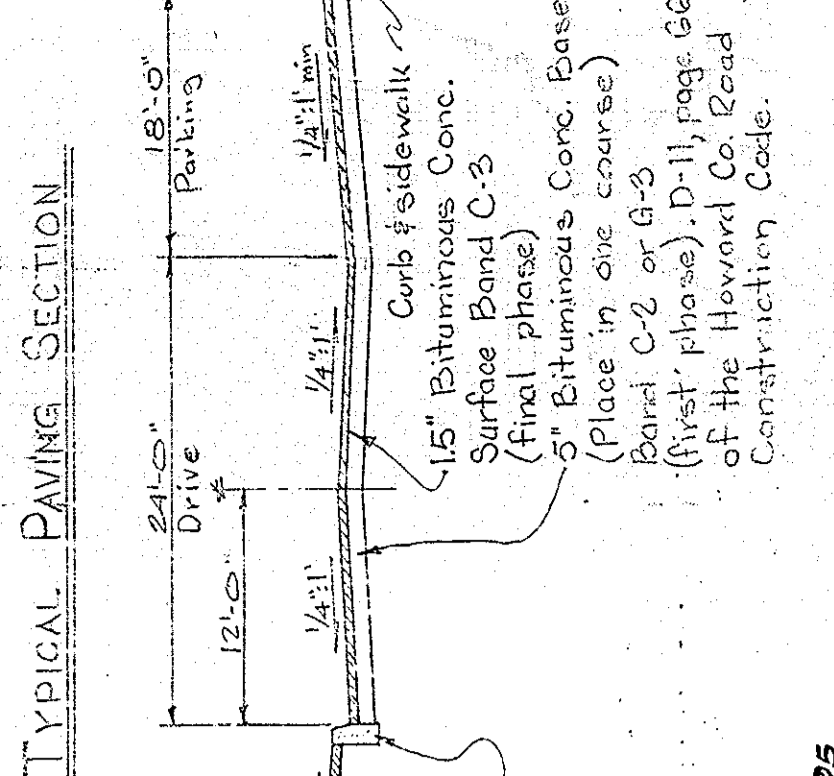 TYPICAL PAVING SECTION
24'-0"
Drive
18'-0"
Parking
12'-0"
1/4":1'
1/4":1'
1/4":1' min
Curb & sidewalk
1.5" Bituminous Conc.
Surface Band C-3
(final phase)
5" Bituminous Conc. Base
(Place in one course)
Band C-2 or G-3
(first phase). D-11, page 66
of the Howard Co. Road
Construction Code.